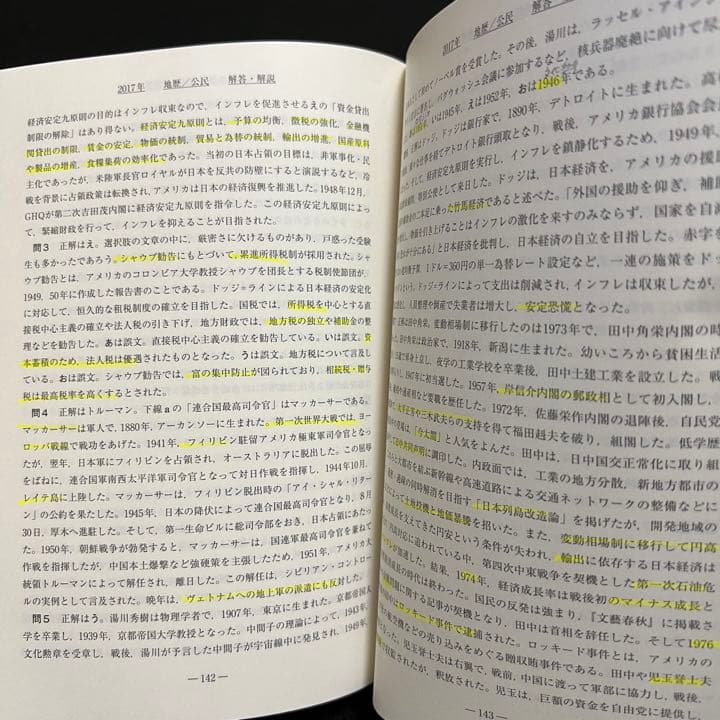 2017年 地歴／公民 解答・解説
経済安定九原則の目的はインフレ収束なので，インフレを促進させるえの「資金貸出
制限の解除」はあり得ない。経済安定九原則とは，予算の均衡，徴税の強化，金融機
関貸出の制限，賃金の安定，物価の統制，貿易と為替の統制，輸出の増進，国産原料
や製品の増産，食糧集荷の効率化であった。当初の日本占領の目標は，非軍事化・民
主化であったが，米陸軍長官ロイヤルが日本を反共の防壁にすると演説するなど，冷
戦を背景に占領政策は転換され，アメリカは日本の経済復興を推進した。1948年12月，
GHQが第二次吉田茂内閣に経済安定九原則を指令した。この経済安定九原則によっ
て，緊縮財政を行って，インフレを抑えることが目指された。
問3 正解はえ。選択肢の文章の中に，厳密さに欠けるものがあり，戸惑った受験
生も多かったであろう。シャウプ勧告にもとづいて，累進所得税制が採用された。シャ
ウプ勧告とは，アメリカのコロンビア大学教授シャウプを団長とする税制使節団が，
1949，50年に作成した報告書のことである。ドッジ＝ラインによる日本経済の安定化
に対応して，恒久的な租税制度の確立を目指した。国税では，所得税を中心とする直
接税中心主義の確立や法人税の引き下げ，地方財政では，地方税の独立や補助金の整
理などを勧告した。あは誤文。直接税中心主義の確立を勧告している。いは誤文。資
本蓄積のため，法人税は優遇されたものとなった。うは誤文。地方税について言及し
ている。おは誤文。シャウプ勧告では，富の集中防止が図られており，相続税・贈与
税は最高税率を高くするとされた。
問4 正解はトルーマン。下線aの「連合国最高司令官」はマッカーサーである。
マッカーサーは軍人で，1880年，アーカンソーに生まれた。第一次世界大戦では，ヨー
ロッパ戦線で戦功をあげた。1941年，フィリピン駐留アメリカ極東軍司令官となっ
たが，翌年，日本軍にフィリピンを占領され，オーストラリアに脱出した。この屈辱
をばねに，連合国軍南西太平洋軍司令官となって対日作戦を指揮し，1944年10月，
レイテ島に上陸した。マッカーサーは，フィリピン脱出時の「アイ・シャル・リター
ン」の公約を果たした。1945年，日本の降伏によって連合国最高司令官となり，8月
30日，厚木へ進駐した。そして，第一生命ビルに総司令部をおき，日本占領にあたっ
た。1950年，朝鮮戦争が勃発すると，マッカーサーは，国連軍最高司令官を兼ねて
作戦を指揮したが，中国本土爆撃など強硬策を主張したため，1951年，アメリカ大
統領トルーマンによって解任され，離日した。この解任は，シビリアン・コントロー
ルの実例として言及される。晩年は，ヴェトナムへの地上軍の派遣にも反対した。
問5 正解はう。湯川秀樹は物理学者で，1907年，東京に生まれた。京都帝国大
学を卒業し，1939年，京都帝国大学教授となった。中間子の理論によって，1943年，
文化勲章を受章し，戦後，湯川が予言した中間子が宇宙線中に発見され，1949年，
― 142 ―
2017年 地歴／公民 解答
してノーベル賞を受賞した。その後，湯川は，ラッセル・アイン
パグウォッシュ会議に参加するなど，核兵器廃絶に向けて尽
いは1945年，えは1952年，おは1946年である。
ドッジ。ドッジは銀行家で，1890年，デトロイトに生まれた。高
経てデトロイト銀行頭取となり，戦後，アメリカ銀行協会会
経済安定九原則を実行し，インフレを鎮静化するため，1949年
として来日した。ドッジは，日本経済を，アメリカの援助
の二本足に乗った竹馬経済であると述べた。「外国の援助を仰ぎ，補助
物価を引き上げることはインフレの激化を来すのみならず，国家を自滅
が十分にある」と日本経済を批判し，日本経済の自立を目指した。赤字を
1ドル＝360円の単一為替レート設定など，一連の施策をド
ドッジ＝ラインによって支出は削減され，インフレは収束したが，
人員整理や倒産で失業者は増大し，安定恐慌となった。
正解は田中角栄。変動相場制に移行したのは1973年で，田中角栄内閣の時
田中角栄は政治家で，1918年，新潟に生まれた。幼いころから貧困生活
で身を立し，夜学の工業学校を卒業後，田中土建工業を設立した。戦
1947年に初当選した。1957年，岸信介内閣の郵政相として初入閣し，
を歴任した。1972年，佐藤栄作内閣の退陣後，自民党
大平正芳や三木武夫らの支持を得て福田赳夫を破り，組閣した。低学歴
「今太閤」と人気をよんだ。田中は，日中国交正常化に取り組
日中共同声明に調印した。内政面では，工業の地方分散，新地方都市の
と大都市を結ぶ新幹線や高速道路による交通ネットワークの整備などに
の同時解消を目指す「日本列島改造論」を掲げたが，開発地域の
土地投機と地価暴騰を招いた。また，変動相場制に移行して円高
を支えてきた円安という条件が失われ，輸出に依存する日本経済は
対応に追われている中，第四次中東戦争を契機とした第一次石油危
が加速した。結果，1974年，経済成長率は戦後初のマイナス成長と
成長の時代は終わった。国民の反発は強まり，『文藝春秋』に掲載さ
問題に関する記事が契機となり，田中は首相を辞任した。そして1976
ロッキード事件で逮捕された。ロッキード事件とは，アメリカの
の売り込みをめぐる贈収賄事件である。田中や児玉誉士夫
された。児玉誉士夫は右翼で，戦前，中国に渡って軍部に協力し，戦後，
されたが，釈放された。児玉は，巨額の資金を自由党に提供し，
― 143 ―